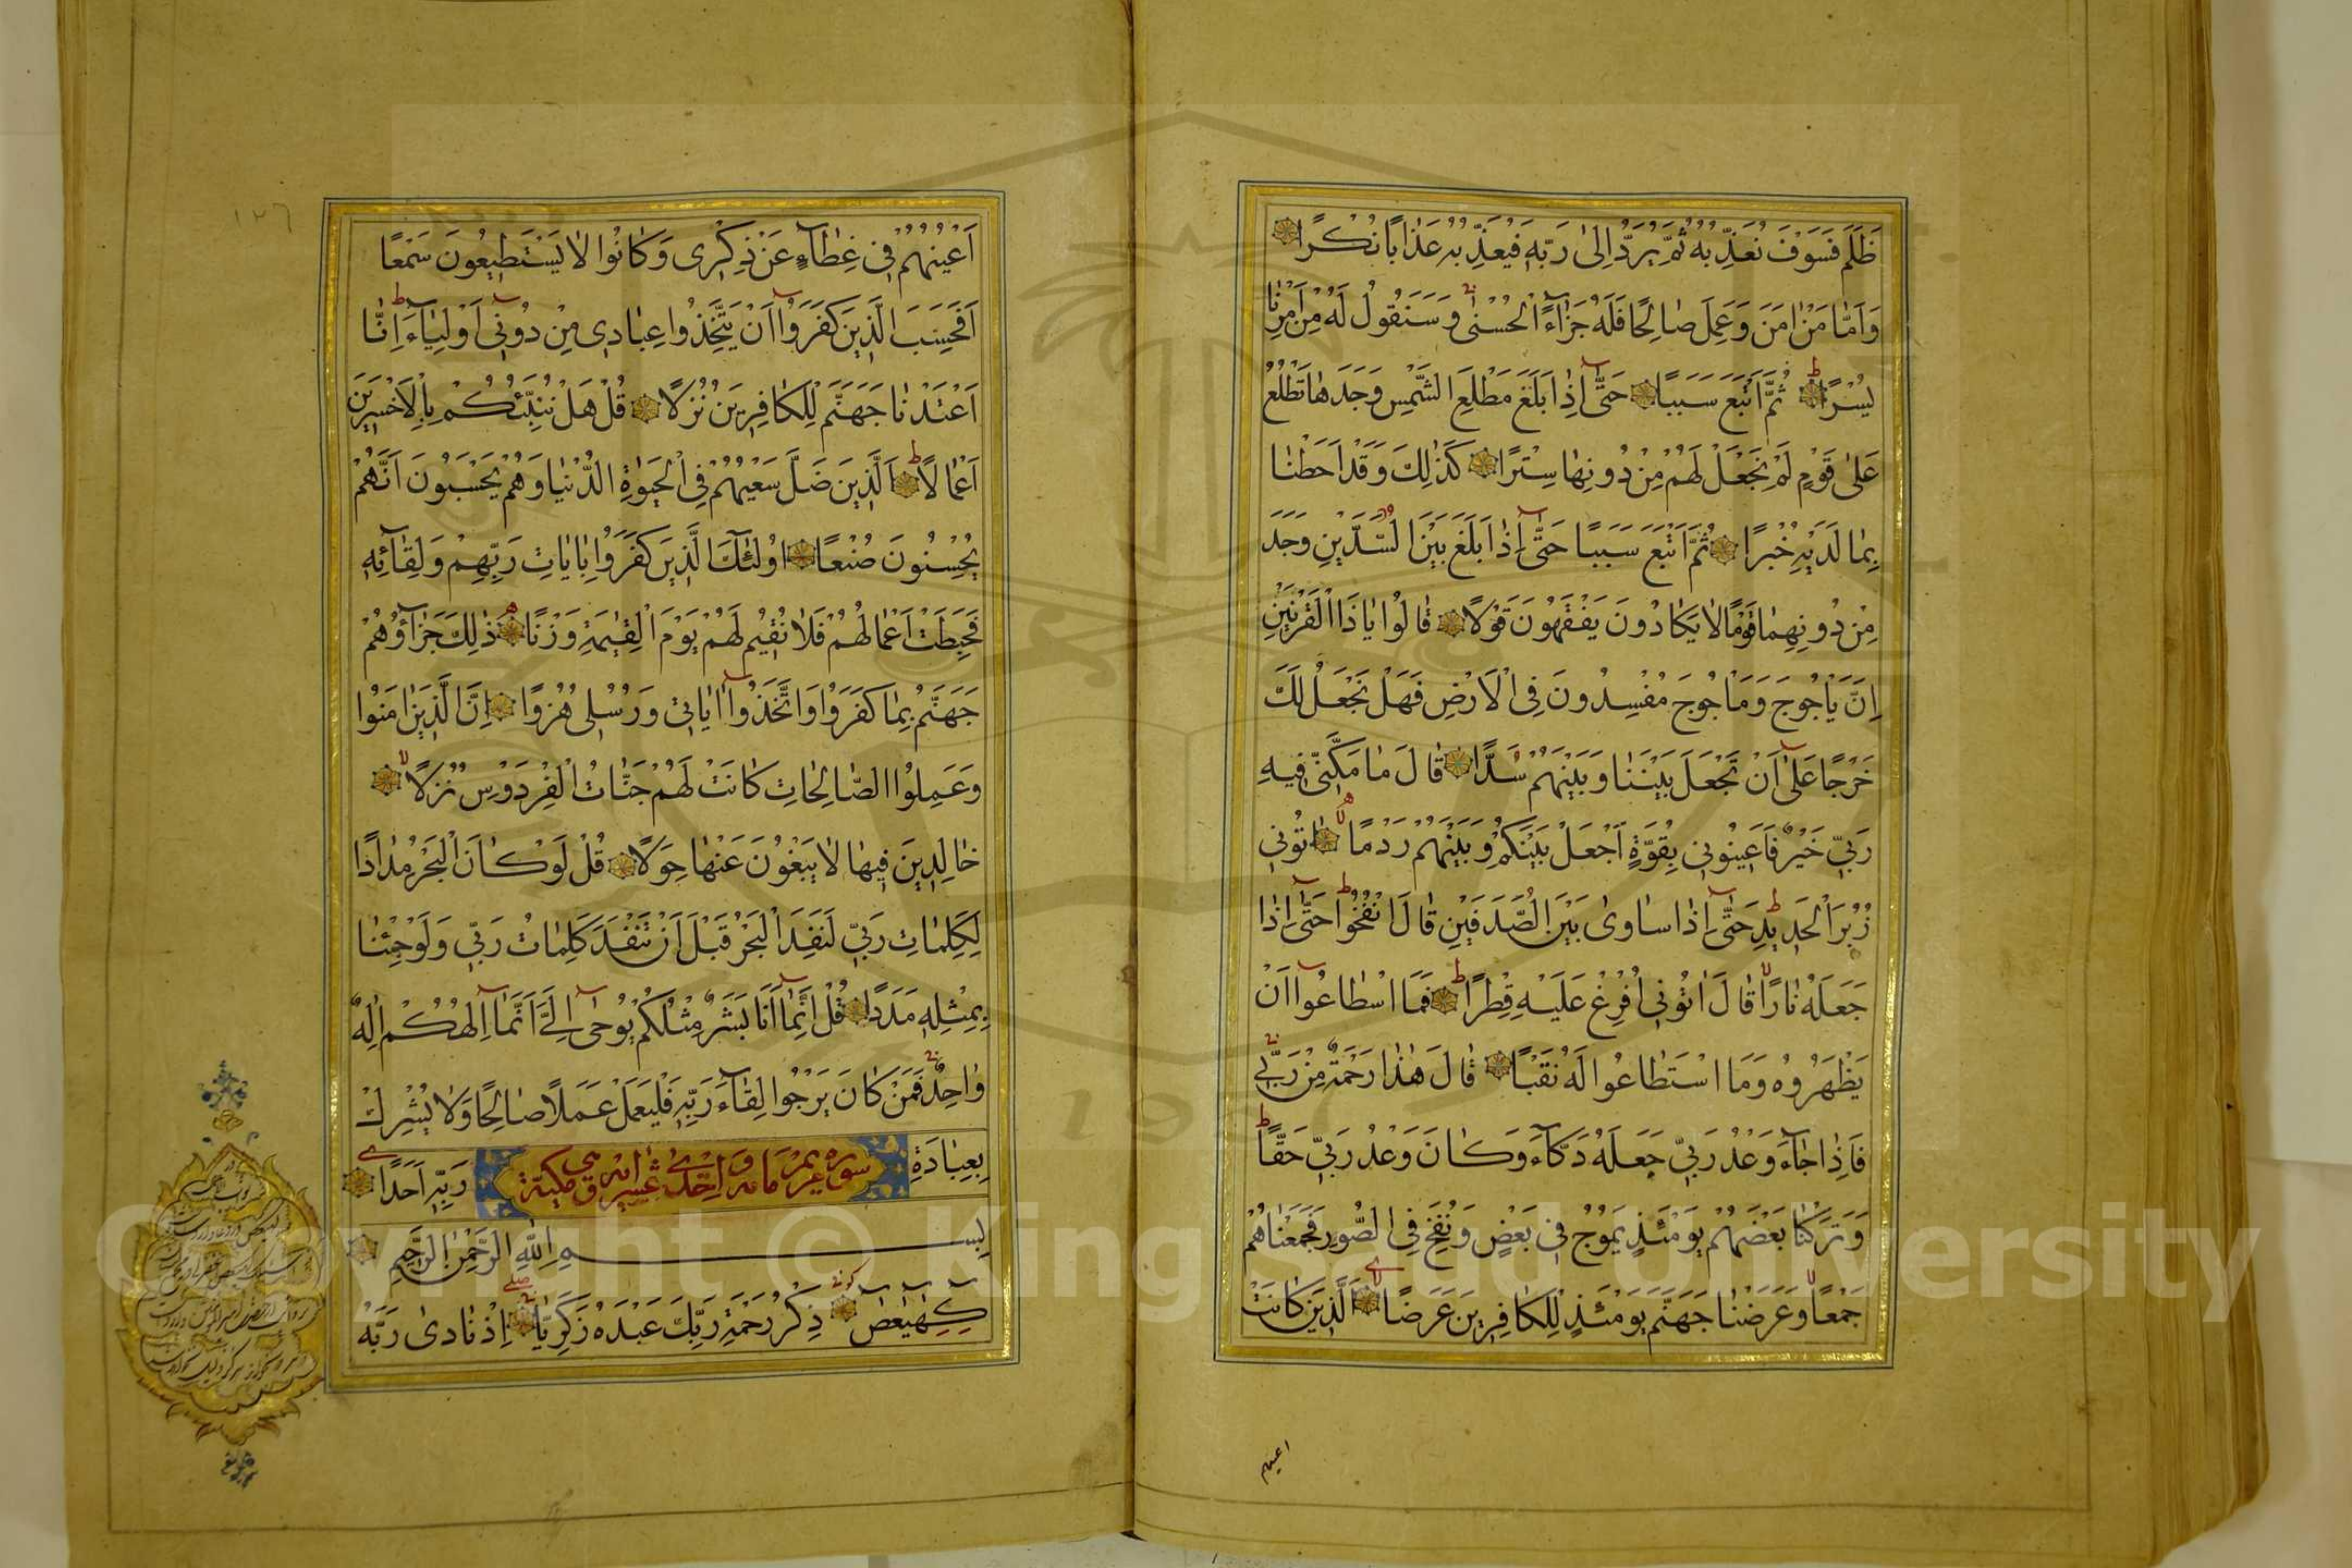 ظَلَمَ فَسَوْفَ نُعَذِّبُهُ ثُمَّ يُرَدُّ اِلٰى رَبِّهٖ فَيُعَذِّبُهُ عَذَابًا نُكْرًا
وَاَمَّا مَنْ اٰمَنَ وَعَمِلَ صَالِحًا فَلَهُ جَزَآءً الْحُسْنٰى وَسَنَقُولُ لَهُ مِنْ اَمْرِنَا
يُسْرًا ثُمَّ اَتْبَعَ سَبَبًا حَتّٰٓى اِذَا بَلَغَ مَطْلِعَ الشَّمْسِ وَجَدَهَا تَطْلُعُ
عَلٰى قَوْمٍ لَمْ نَجْعَلْ لَهُمْ مِنْ دُونِهَا سِتْرًا كَذٰلِكَ وَقَدْ اَحَطْنَا
بِمَا لَدَيْهِ خُبْرًا ثُمَّ اَتْبَعَ سَبَبًا حَتّٰٓى اِذَا بَلَغَ بَيْنَ السَّدَّيْنِ وَجَدَ
مِنْ دُونِهِمَا قَوْمًا لَا يَكَادُونَ يَفْقَهُونَ قَوْلًا قَالُوا يَا ذَا الْقَرْنَيْنِ
اِنَّ يَاْجُوجَ وَمَاْجُوجَ مُفْسِدُونَ فِى الْاَرْضِ فَهَلْ نَجْعَلُ لَكَ
خَرْجًا عَلٰٓى اَنْ تَجْعَلَ بَيْنَنَا وَبَيْنَهُمْ سَدًّا قَالَ مَا مَكَّنِّى فِيهِ
رَبِّى خَيْرٌ فَاَعِينُونِى بِقُوَّةٍ اَجْعَلْ بَيْنَكُمْ وَبَيْنَهُمْ رَدْمًا اٰتُونِى
زُبَرَ الْحَدِيدِ حَتّٰٓى اِذَا سَاوٰى بَيْنَ الصَّدَفَيْنِ قَالَ انْفُخُوا حَتّٰٓى اِذَا
جَعَلَهُ نَارًا قَالَ اٰتُونِى اُفْرِغْ عَلَيْهِ قِطْرًا فَمَا اسْطَاعُوٓا اَنْ
يَظْهَرُوهُ وَمَا اسْتَطَاعُوا لَهُ نَقْبًا قَالَ هٰذَا رَحْمَةٌ مِنْ رَبِّى
فَاِذَا جَآءَ وَعْدُ رَبِّى جَعَلَهُ دَكَّآءَ وَكَانَ وَعْدُ رَبِّى حَقًّا
وَتَرَكْنَا بَعْضَهُمْ يَوْمَئِذٍ يَمُوجُ فِى بَعْضٍ وَنُفِخَ فِى الصُّورِ فَجَمَعْنَاهُمْ
جَمْعًا وَعَرَضْنَا جَهَنَّمَ يَوْمَئِذٍ لِلْكَافِرِينَ عَرْضًا اَلَّذِينَ كَانَتْ
اعينهم
١٢٦
اَعْيُنُهُمْ فِى غِطَآءٍ عَنْ ذِكْرِى وَكَانُوا لَا يَسْتَطِيعُونَ سَمْعًا
اَفَحَسِبَ الَّذِينَ كَفَرُوٓا اَنْ يَتَّخِذُوا عِبَادِى مِنْ دُونِٓى اَوْلِيَآءَ اِنَّٓا
اَعْتَدْنَا جَهَنَّمَ لِلْكَافِرِينَ نُزُلًا قُلْ هَلْ نُنَبِّئُكُمْ بِالْاَخْسَرِينَ
اَعْمَالًا اَلَّذِينَ ضَلَّ سَعْيُهُمْ فِى الْحَيٰوةِ الدُّنْيَا وَهُمْ يَحْسَبُونَ اَنَّهُمْ
يُحْسِنُونَ صُنْعًا اُولٰٓئِكَ الَّذِينَ كَفَرُوا بِاٰيَاتِ رَبِّهِمْ وَلِقَآئِهٖ
فَحَبِطَتْ اَعْمَالُهُمْ فَلَا نُقِيمُ لَهُمْ يَوْمَ الْقِيٰمَةِ وَزْنًا ذٰلِكَ جَزَآؤُهُمْ
جَهَنَّمُ بِمَا كَفَرُوا وَاتَّخَذُوٓا اٰيَاتِى وَرُسُلِى هُزُوًا اِنَّ الَّذِينَ اٰمَنُوا
وَعَمِلُوا الصَّالِحَاتِ كَانَتْ لَهُمْ جَنَّاتُ الْفِرْدَوْسِ نُزُلًا
خَالِدِينَ فِيهَا لَا يَبْغُونَ عَنْهَا حِوَلًا قُلْ لَوْ كَانَ الْبَحْرُ مِدَادًا
لِكَلِمَاتِ رَبِّى لَنَفِدَ الْبَحْرُ قَبْلَ اَنْ تَنْفَدَ كَلِمَاتُ رَبِّى وَلَوْ جِئْنَا
بِمِثْلِهٖ مَدَدًا قُلْ اِنَّمَٓا اَنَا بَشَرٌ مِثْلُكُمْ يُوحٰٓى اِلَىَّ اَنَّمَٓا اِلٰهُكُمْ اِلٰهٌ
وَاحِدٌ فَمَنْ كَانَ يَرْجُوا لِقَآءَ رَبِّهٖ فَلْيَعْمَلْ عَمَلًا صَالِحًا وَلَا يُشْرِكْ
بِعِبَادَةِ رَبِّهٖٓ اَحَدًا
سورة مريم مائة واحدى عشر اية وهي مكية
بِسْمِ اللّٰهِ الرَّحْمٰنِ الرَّحِيمِ
كٓهٰيٰعٓصٓ ذِكْرُ رَحْمَةِ رَبِّكَ عَبْدَهُ زَكَرِيَّا اِذْ نَادٰى رَبَّهُ
Copyright © King Saud University
1957